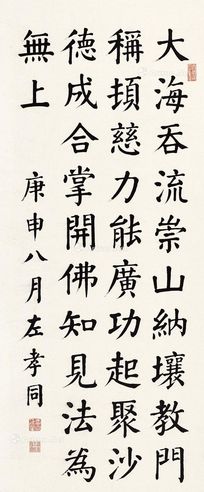 大海吞流崇山納壤教門
稱揁慈力能廣功起聚沙
德成合掌開佛知見法為
無上
庚申八月左孝同